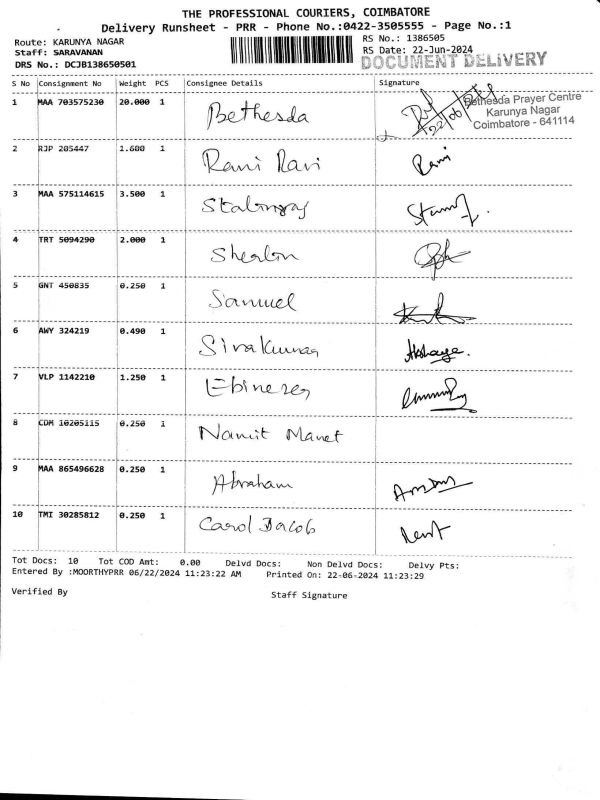 THE PROFESSIONAL COURIERS, COIMBATORE
Delivery Runsheet - PRR - Phone No.:0422-3505555 - Page No.:1
Route: KARUNYA NAGAR
RS No.: 1386505
Staff: SARAVANAN
RS Date: 22-Jun-2024
DRS No.: DCJB138650501
DOCUMENT DELIVERY
S No Consignment No Weight PCS Consignee Details Signature
1 MAA 703575230 20.000 1 Bethesda
22/06/24
Bethesda Prayer Centre
Karunya Nagar
Coimbatore - 641114
2 RJP 205447 1.600 1 Rani Ravi Rani
3 MAA 575114615 3.500 1 Stalinraj
4 TRT 5094290 2.000 1 Sharlon
5 GNT 450835 0.250 1 Samuel
6 AWY 324219 0.490 1 Sivakumar Akshaya.
7 VLP 1142210 1.250 1 Ebinezer
8 CDM 10205115 0.250 1 Namit Manet
9 MAA 865496628 0.250 1 Abraham
10 TMI 30285812 0.250 1 Carol Jacob
Tot Docs: 10 Tot COD Amt: 0.00 Delvd Docs: Non Delvd Docs: Delvy Pts:
Entered By :MOORTHYPRR 06/22/2024 11:23:22 AM Printed On: 22-06-2024 11:23:29
Verified By
Staff Signature